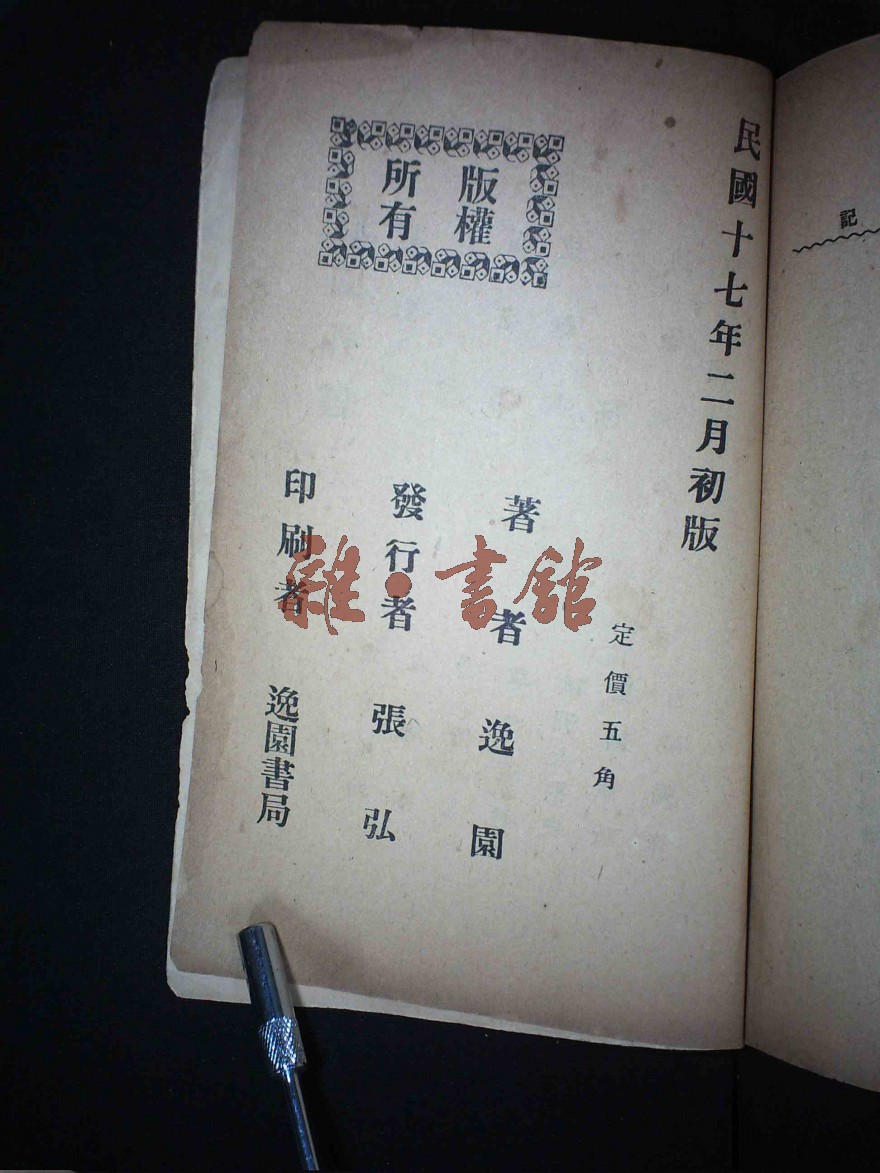 民國十七年二月初版
定價五角
著者 逸園
發行者 張弘
印刷者 逸園書局
版權
所有
雜·書館
記